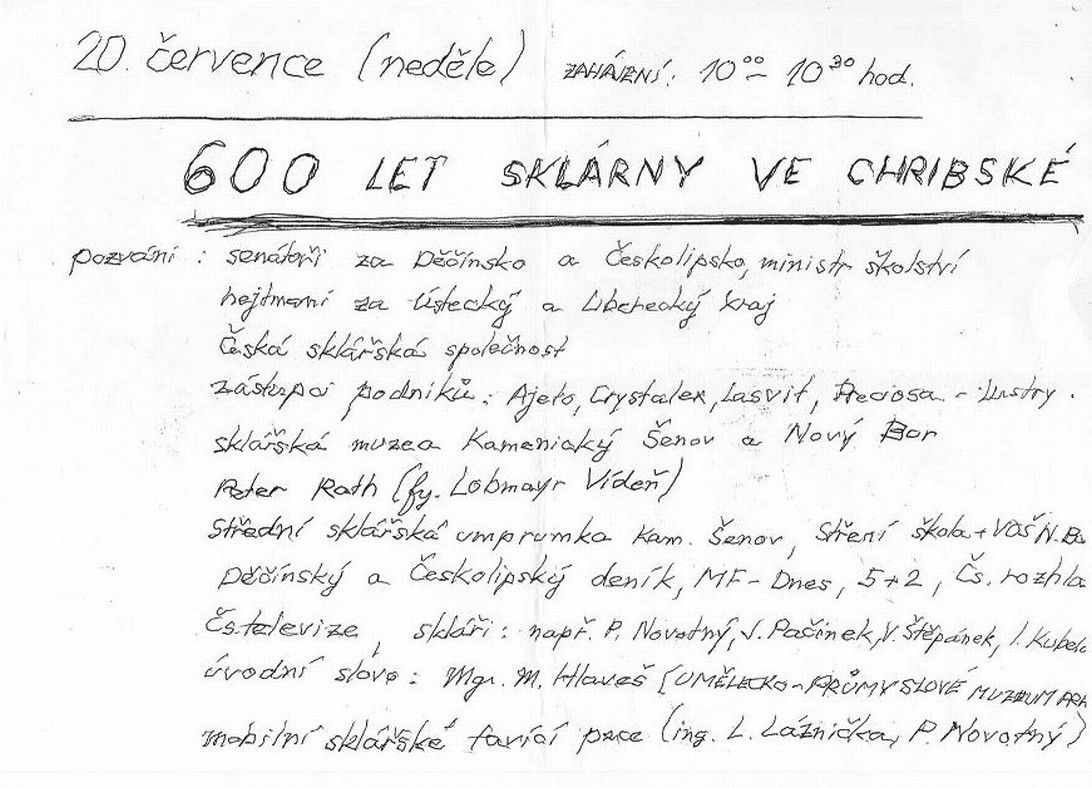 20. července (neděle) ZAHÁJENÍ: 10⁰⁰ - 10³⁰ hod.
600 LET SKLÁRNY VE CHRIBSKÉ
pozváni : senátoři za Děčínsko a Českolipsko, ministr školství
hejtmani za Ústecký a Liberecký kraj
Česká sklářská společnost
zástupci podniků: Ajeto, Crystalex, Lasvit, Preciosa - Lustry.
sklářská muzea Kamenický Šenov a Nový Bor
Peter Rath (fy. Lobmayr Vídeň)
Střední sklářská umprumka Kam. Šenov, Stření škola + VOŠ N. Bo
Děčínský a Českolipský deník, MF - Dnes, 5+2, Čs. rozhla
Čs. televize, skláři: např. P. Novotný, J. Pačinek, V. Štěpánek, I. Kubel
úvodní slovo: Mgr. M. Hlaveš (UMĚLECKO-PRŮMYSLOVÉ MUZEUM
mobilní sklářské tavící pece (ing. L. Láznička, P. Novotný)